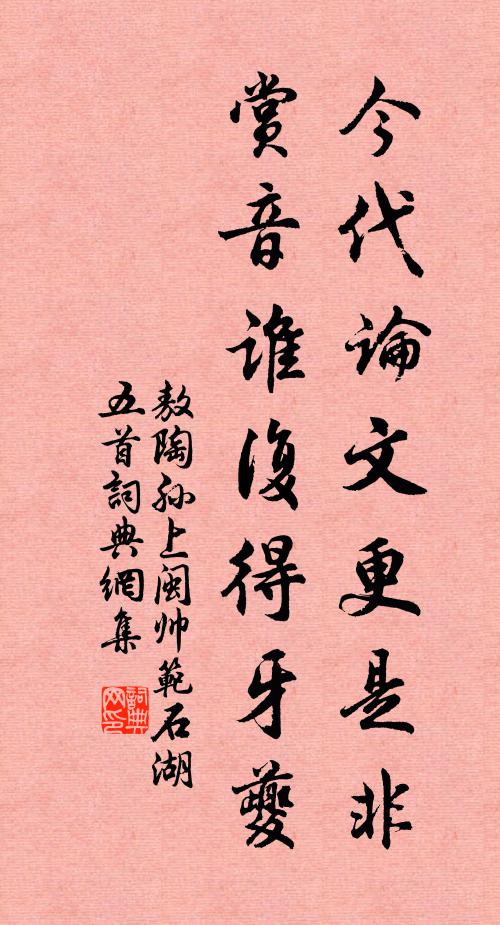 今代論文更是非
賞音誰復得牙夔
敖陶孙上閩帅範石湖
五首詞典網集
詞典
网印